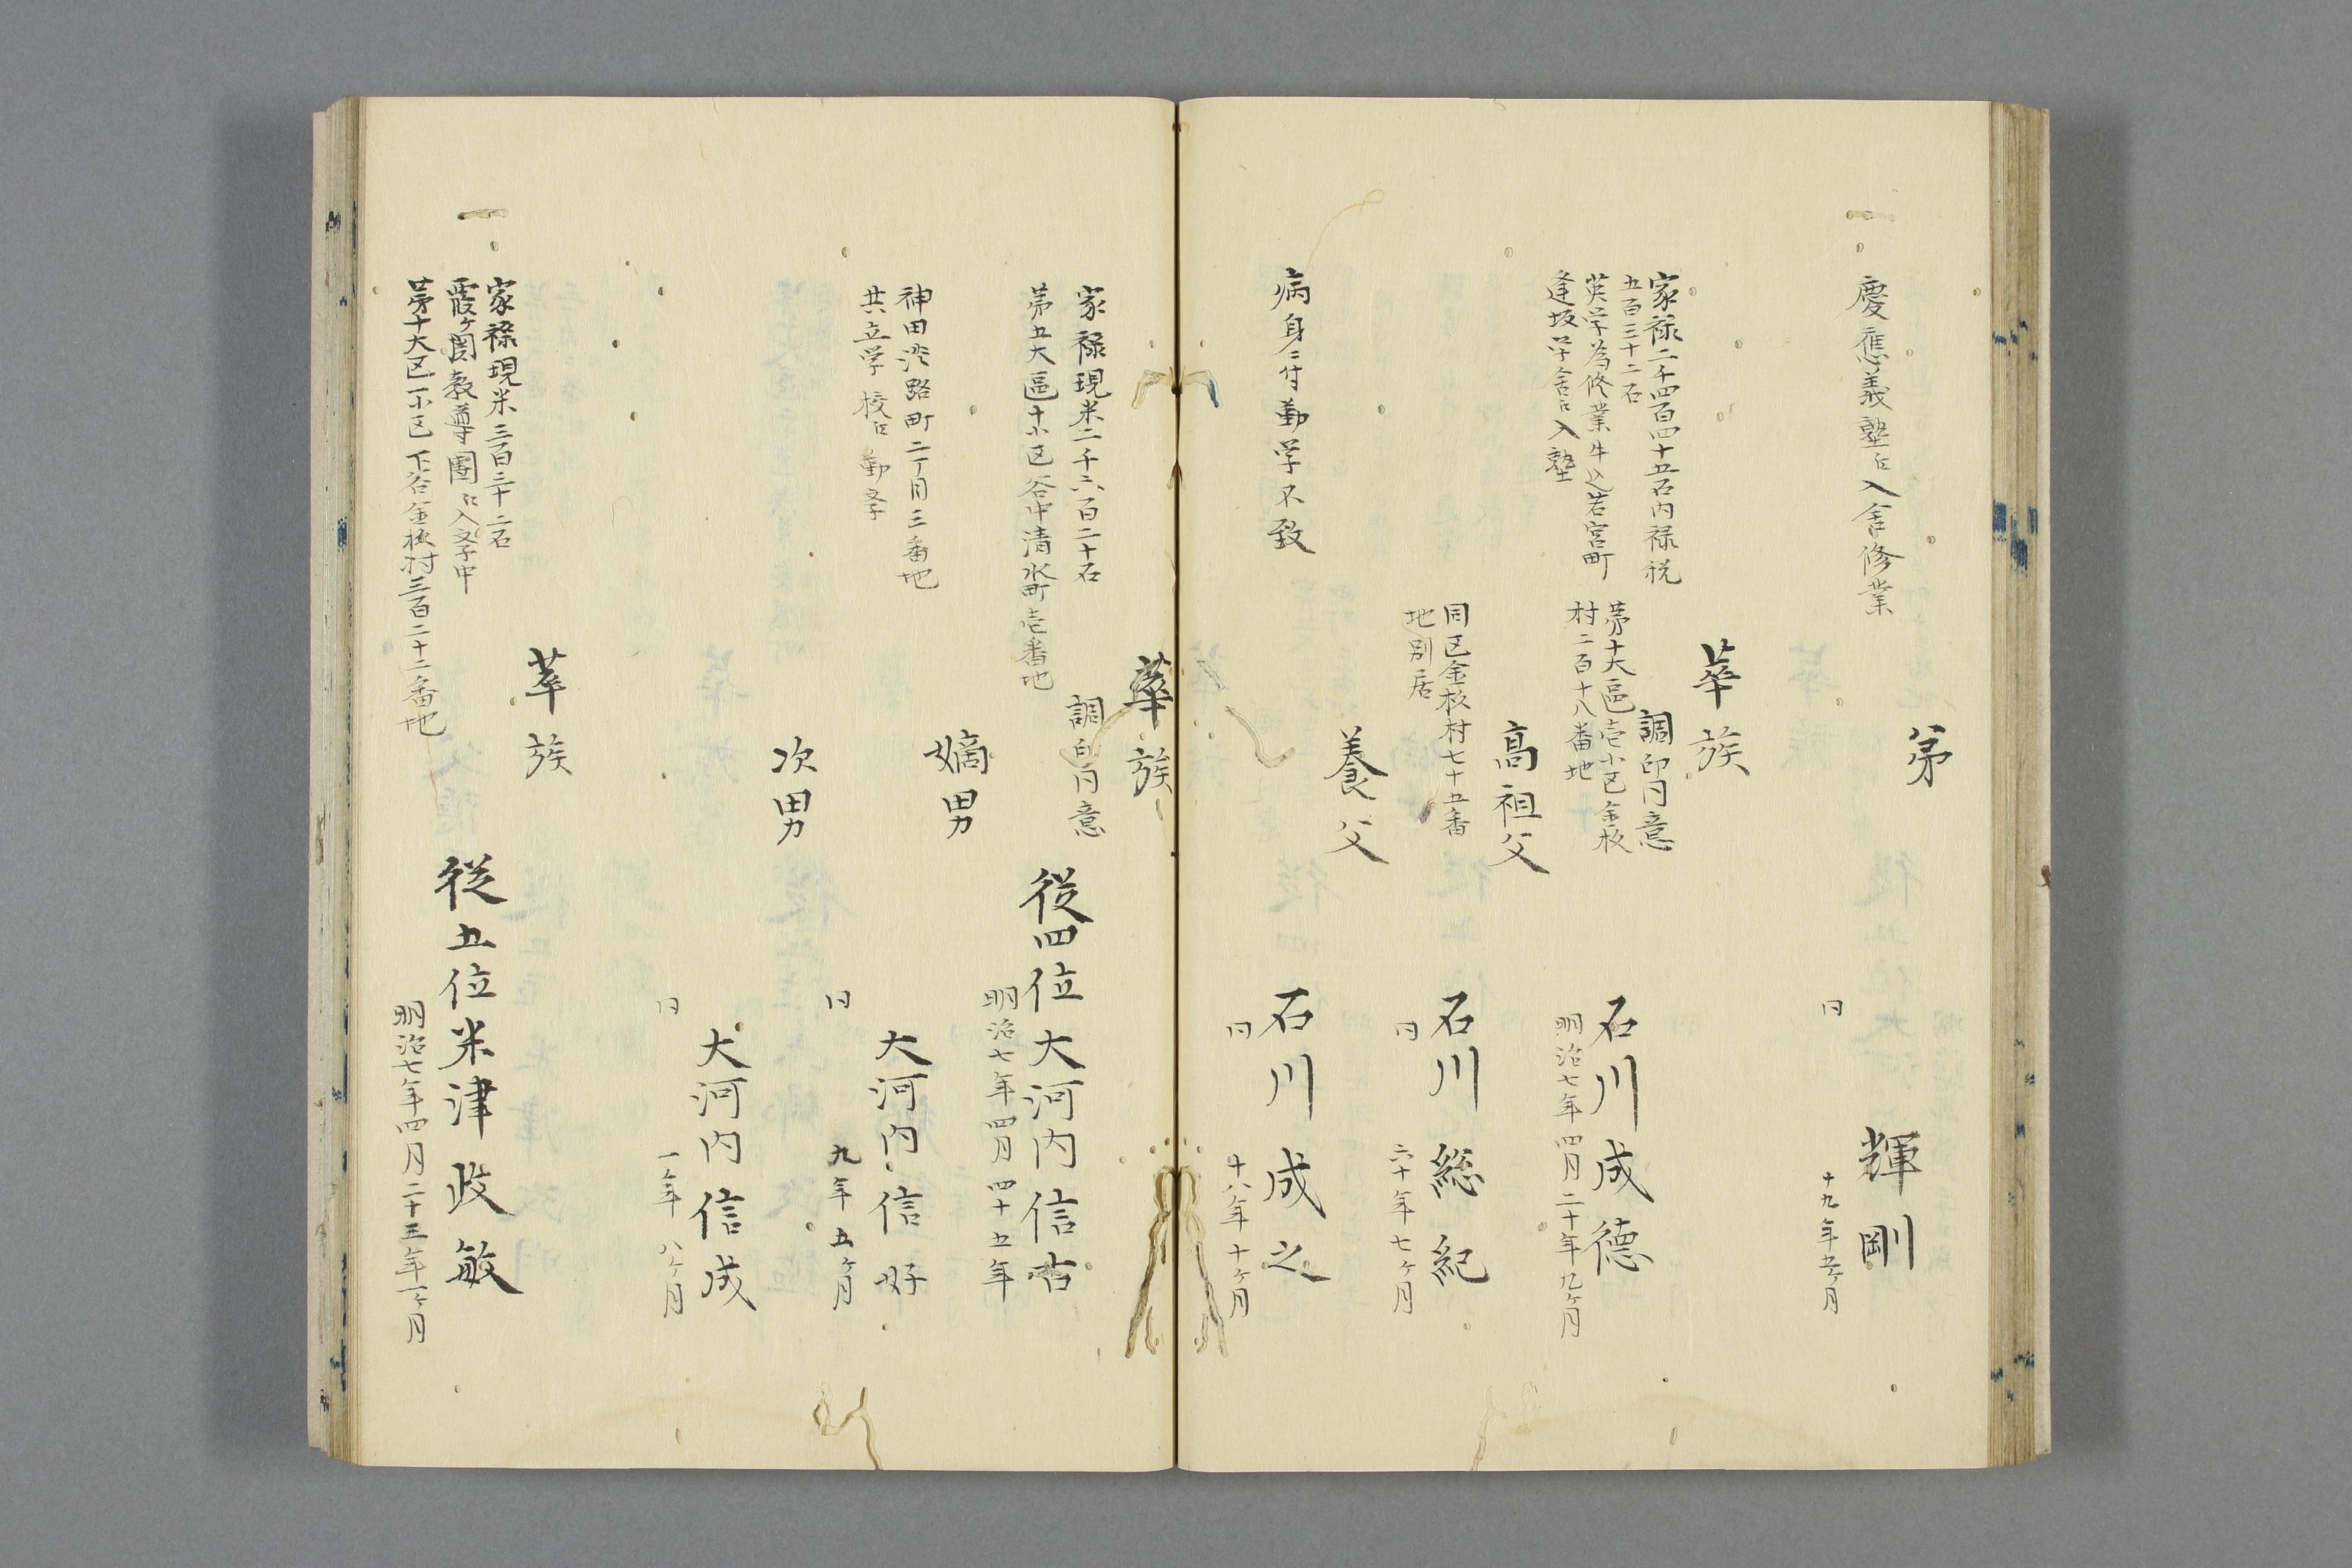 弟
慶應義塾江入舎修業
輝剛
同
十九年五ヶ月
華族
家禄二千四百四十五石内禄税
五百三十二石
調印同意
英学為修業牛込若宮町
逢坂学舎江入塾
第十大區壱小区金杉
村二百十八番地
石川成徳
明治七年四月二十年九ヶ月
高祖父
同区金杉村七十五番
地別居
石川総紀
同
六十年七ヶ月
養父
病身ニ付勤学不致
石川成之
同
十八年十ヶ月
華族
家禄現米二千六百二十石
調印同意
第五大區十小区谷中清水町壱番地
従四位大河内信古
明治七年四月四十五年
嫡男
神田淡路町二丁目三番地
共立学校江勤学
大河内信好
同
九年五ヶ月
次男
大河内信成
同
一年八ヶ月
華族
家禄現米三百三十二石
霞ヶ関教導團江入学中
第十大区一小区下谷金杉村三百二十二番地
従五位米津政敏
明治七年四月二十三年一ヶ月